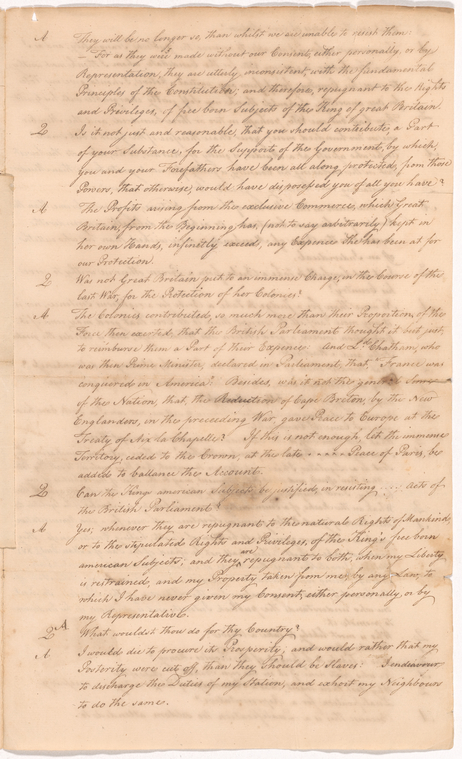 A They will be no longer so, than whilst we are unable to resist them:
— For as they were made without our Consent, either personally, or by
Representation, they are utterly inconsistent, with the fundamental
Principles of the Constitution; and therefore, repugnant to the Rights
and Privileges, of free born Subjects of the King of great Britain.
Q Is it not just and reasonable, that you should contribute, a Part
of your Substance, for the Support of the Government, by which,
you and your Forefathers have been all along protected, from those
Powers, that otherwise, would have dispossessed you of all you have?
A The Profits arising from the exclusive Commerce, which Great
Britain, from the Beginning has, (not to say arbitrarily) kept in
her own Hands, infinitely exceed, any Expence She has been at for
our Protection.
Q Was not Great Britain put to an immense Charge, in the Course of the
last War, for the Protection of her Colonies?
A The Colonies contributed, so much more than their Proportion, of the
Force then exerted, that the British Parliament thought it but just,
to reimburse them a Part of their Expence: And Ld. Chatham, who
was then Prime Minister, declared in Parliament, that, "France was
conquered in America." Besides, was it not the
of the Nation, that, the Reduction of Cape Breton, by the New
Englanders, in the preceeding War, gave Peace to Europe at the
Treaty of Aix la Chapelle? If this is not enough, let the immense
Territory, ceded to the Crown, at the late - - - - Peace of Paris, be
added to ballance the Account.
Q Can the Kings american Subjects, be justified, in resisting .... Acts of
the British Parliament?
A Yes; whenever they are repugnant to the natural Rights of Mankind,
or to the stipulated Rights and Privileges, of the King's free born
american Subjects; and they are repugnant to both, when my Liberty
is restrained, and my Property taken from me, by any Law, to
which I have never given my Consent, either personally, or by
my Representatives.
Q A What wouldst thou do for thy Country?
A I would die to procure its Prosperity; and would rather that my
Posterity were cut off, than they should be Slaves: I endeavour
to discharge the Duties of my Station, and exhort my Neighbours
to do the same.